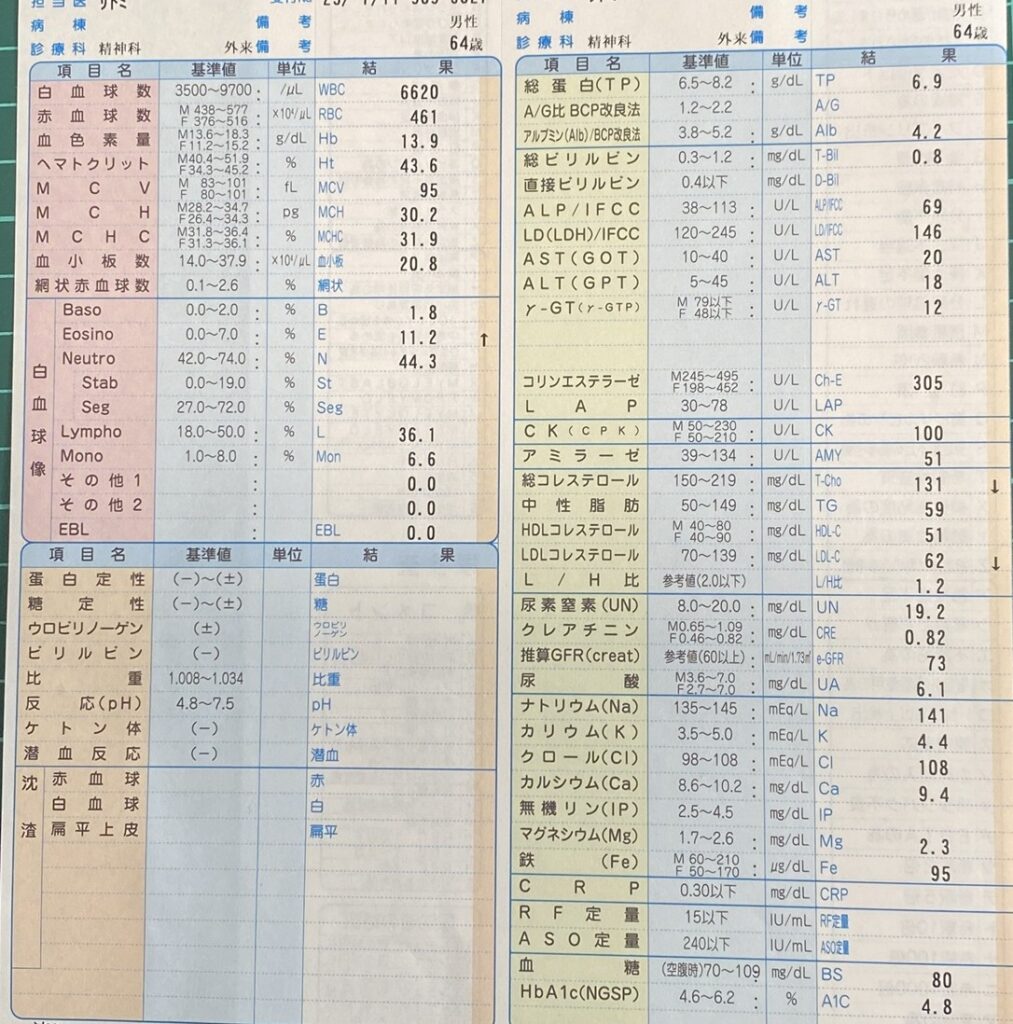 備 考
男性
病 棟
64歳
診療科 精神科 外来 備 考
項目名 基準値 単位 結 果
白血球数 3500〜9700 : /μL WBC 6620
赤血球数 M 438〜577 F 376〜516 : ×10⁴/μL RBC 461
血色素量 M13.6〜18.3 F11.2〜15.2 : g/dL Hb 13.9
ヘマトクリット M40.4〜51.9 F34.3〜45.2 : % Ht 43.6
MCV M 83〜101 F 80〜101 : fL MCV 95
MCH M28.2〜34.7 F26.4〜34.3 : pg MCH 30.2
MCHC M31.8〜36.4 F31.3〜36.1 : % MCHC 31.9
血小板数 14.0〜37.9 : ×10⁴/μL 血小板 20.8
網状赤血球数 0.1〜2.6 % 網状
白血球像
Baso 0.0〜2.0 : % B 1.8
Eosino 0.0〜7.0 : % E 11.2 ↑
Neutro 42.0〜74.0 : % N 44.3
Stab 0.0〜19.0 % St
Seg 27.0〜72.0 % Seg
Lympho 18.0〜50.0 : % L 36.1
Mono 1.0〜8.0 : % Mon 6.6
その他1 : 0.0
その他2 : 0.0
EBL : EBL 0.0
項目名 基準値 単位 結 果
蛋白定性 (−)〜(±) 蛋白
糖定性 (−)〜(±) 糖
ウロビリノーゲン (±) ウロビリノーゲン
ビリルビン (−) ビリルビン
比重 1.008〜1.034 比重
反応(pH) 4.8〜7.5 pH
ケトン体 (−) ケトン体
潜血反応 (−) 潜血
沈渣
赤血球 赤
白血球 白
扁平上皮 扁平
備 考
男性
病 棟
64歳
診療科 精神科 外来 備 考
項目名 基準値 単位 結 果
総蛋白(TP) 6.5〜8.2 : g/dL TP 6.9
A/G比 BCP改良法 1.2〜2.2 A/G
アルブミン(Alb)/BCP改良法 3.8〜5.2 : g/dL Alb 4.2
総ビリルビン 0.3〜1.2 : mg/dL T-Bil 0.8
直接ビリルビン 0.4以下 mg/dL D-Bil
ALP/IFCC 38〜113 : U/L ALP/IFCC 69
LD(LDH)/IFCC 120〜245 : U/L LD/IFCC 146
AST(GOT) 10〜40 : U/L AST 20
ALT(GPT) 5〜45 : U/L ALT 18
γ-GT(γ-GTP) M 79以下 F 48以下 : U/L γ-GT 12
コリンエステラーゼ M245〜495 F198〜452 : U/L Ch-E 305
LAP 30〜78 U/L LAP
CK(CPK) M 50〜230 F 50〜210 : U/L CK 100
アミラーゼ 39〜134 : U/L AMY 51
総コレステロール 150〜219 : mg/dL T-Cho 131 ↓
中性脂肪 50〜149 : mg/dL TG 59
HDLコレステロール M 40〜80 F 40〜90 : mg/dL HDL-C 51
LDLコレステロール 70〜139 : mg/dL LDL-C 62 ↓
L/H比 参考値(2.0以下) L/H比 1.2
尿素窒素(UN) 8.0〜20.0 : mg/dL UN 19.2
クレアチニン M0.65〜1.09 F0.46〜0.82 : mg/dL CRE 0.82
推算GFR(creat) 参考値(60以上) : mL/min/1.73㎡ e-GFR 73
尿酸 M3.6〜7.0 F2.7〜7.0 : mg/dL UA 6.1
ナトリウム(Na) 135〜145 : mEq/L Na 141
カリウム(K) 3.5〜5.0 : mEq/L K 4.4
クロール(Cl) 98〜108 : mEq/L Cl 108
カルシウム(Ca) 8.6〜10.2 : mg/dL Ca 9.4
無機リン(IP) 2.5〜4.5 mg/dL IP
マグネシウム(Mg) 1.7〜2.6 : mg/dL Mg 2.3
鉄 (Fe) M 60〜210 F 50〜170 : μg/dL Fe 95
CRP 0.30以下 mg/dL CRP
RF定量 15以下 IU/mL RF定量
ASO定量 240以下 IU/mL ASO定量
血糖 (空腹時)70〜109 : mg/dL BS 80
HbA1c(NGSP) 4.6〜6.2 : % A1C 4.8